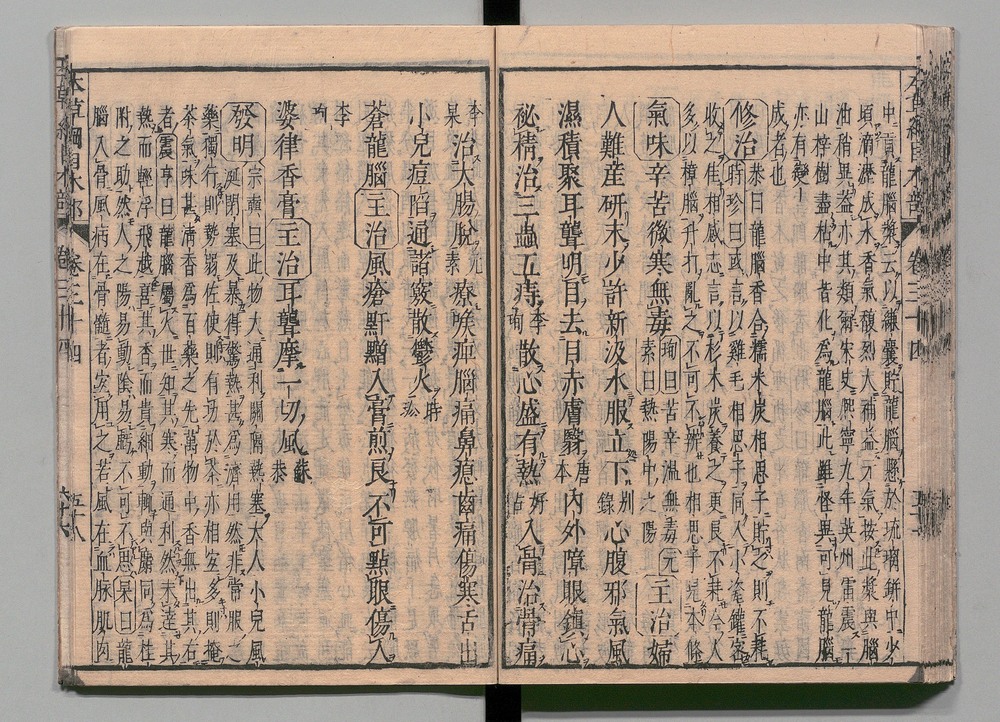 中貢龍腦漿云以縑囊貯龍腦懸於琉璃缾中少
頃滴瀝成水香氣馥烈大補益元氣按此漿與腦
油稍異蓋亦其類爾宋史熙寧九年英州雷震一
山梓樹盡枯中皆化爲龍腦此雖怪異可見龍腦
亦有變
成者也
修治 恭曰龍腦香合糯米炭相思子貯之則不耗
時珍曰或言以雞毛相思子同入小瓷罐密
收之佳相感志言以杉木炭養之更良不耗今人
多以樟腦升打亂之不可不辨也相思子見本條
氣味辛苦微寒無毒 珣曰苦辛溫無毒元
素曰熱陽中之陽 主治婦
人難產研末少許新汲水服立下 別錄 心腹邪氣風
濕積聚耳聾明目去目赤膚翳 唐本 內外障眼鎮心
秘精治三蟲五痔 李珣 散心盛有熱 好古 入骨治骨痛
李杲 治大腸脫 元素 療喉痺腦痛鼻瘜齒痛傷寒舌出
小兒痘陷通諸竅散鬱火 時珍
蒼龍腦 主治 風瘡䵟䵳入膏煎良不可點眼傷人
李珣
婆律香膏 主治 耳聾摩一切風 蘇恭
發明 宗奭曰此物大通利關隔熱塞大人小兒風
涎閉塞及暴得驚熱甚爲濟用然非常服之
藥獨行則勢弱佐使則有功於茶亦相宜多則掩
茶氣味甚清香爲百藥之先萬物中香無出其右
者震亨曰龍腦屬火世知其寒而通利然未達其
熱而輕浮飛越喜其香而貴細動輒與麝同爲桂
附之助然人之陽易動陰易虧不可不思杲曰龍
腦入骨風病在骨髓者宜用之若風在血脉肌肉
本草綱目木部 卷三十四